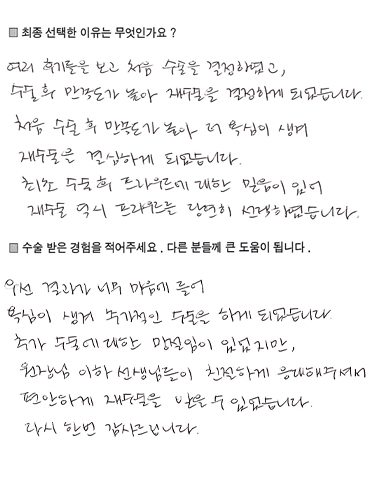 최종 선택한 이유는 무엇인가요 ?
여러 후기들을 보고 처음 수술을 결정하였고,
수술후 만족도가 높아 재수술을 결정하게 되었습니다.
처음 수술 후 만족도가 높아 더 욕심이 생겨
재수술은 결심하게 되었습니다.
최초 수술 후 프라우드에 대한 믿음이 있어
재수술 역시 프라우드를 당연히 선택하였습니다.
수술 받은 경험을 적어주세요 . 다른 분들께 큰 도움이 됩니다 .
우선 결과가 너무 마음에 들어
욕심이 생겨 추가적인 수술을 하게 되었습니다.
추가 수술에 대한 망설임이 있었지만,
원장님 이하 선생님들이 친절하게 응대해주셔서
편안하게 재수술을 받을 수 있었습니다.
다시 한번 감사드립니다.